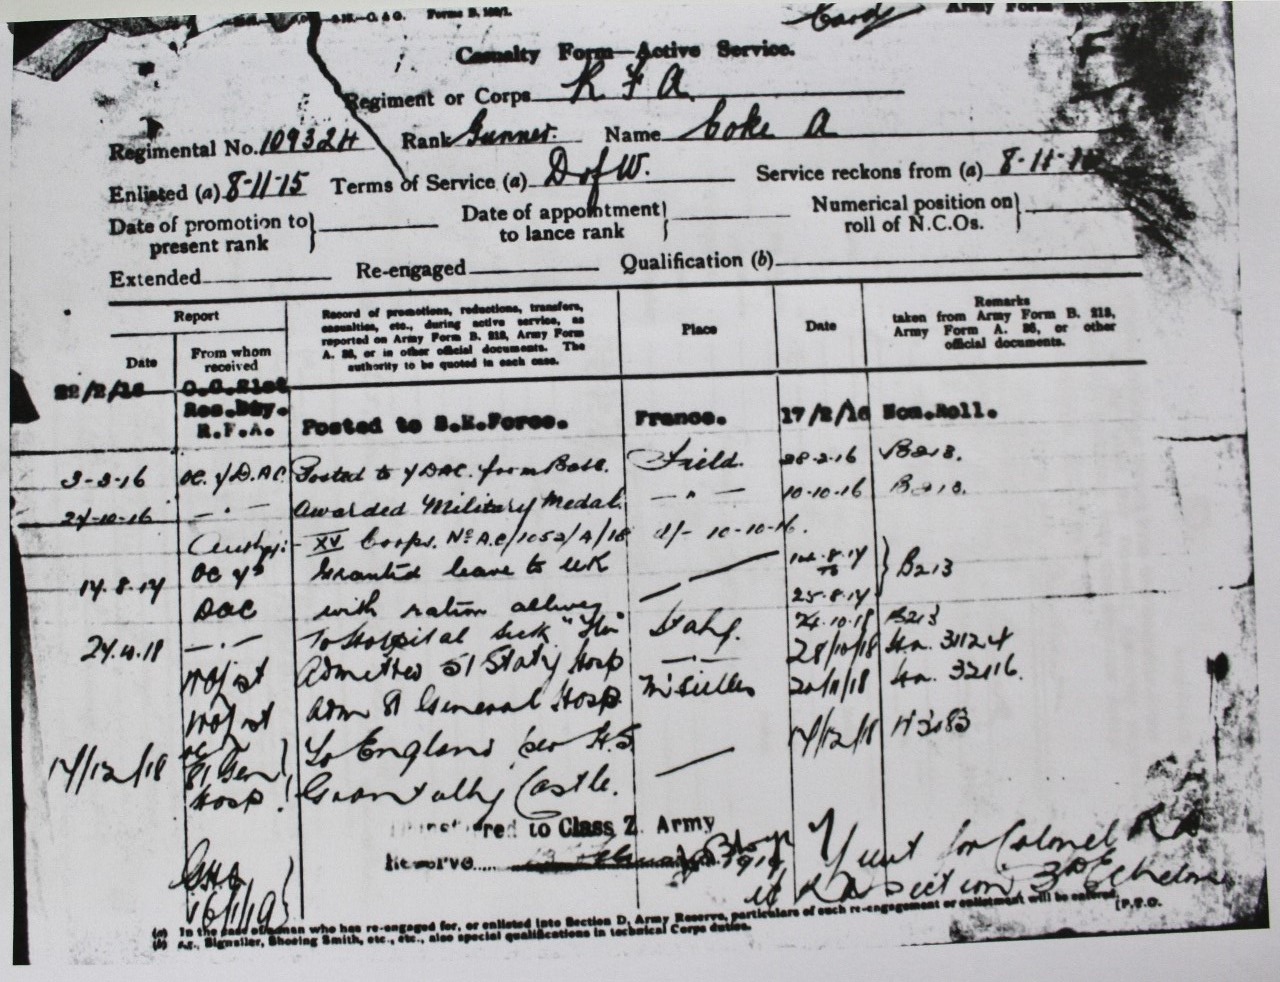 Forms B. 103/1.
Army Form
Casualty Form—Active Service.
Regiment or Corps R F A
Regimental No. 109324 Rank Gunner. Name Coke A
Enlisted (a) 8-11-15 Terms of Service (a) D of W. Service reckons from (a) 8-11-
Date of promotion to present rank } Date of appointment to lance rank } Numerical position on roll of N.C.Os. }
Extended Re-engaged Qualification (b)
Report
Record of promotions, reductions, transfers, casualties, etc., during active service, as reported on Army Form B. 213, Army Form A. 36, or in other official documents. The authority to be quoted in each case.
Place
Date
Remarks taken from Army Form B. 213, Army Form A. 36, or other official documents.
Date
From whom received
22/2/16 O.C.21st Res.Bty. R.F.A. Posted to B.E.Force. France. 17/2/16 Nom.Roll.
3-3-16 OC. Y D.A.C. Posted to Y DAC. from Base. Field. 28-2-16 B213.
24-10-16 — " — Awarded Military Medal. — " — 10-10-16 B213.
XV Corps. No A.C/1052/A/18 d/- 10-10-16.
14.8.17 OC Y Granted leave to UK B213
DAC with ration 25.8.17
To Hospital Sick 24.10.18 B213
— . — Admitted 51 Staty Hosp — . — 28/10/18 31124
Adm 81 General Hosp 20/11/18 32116.
17/12/18 OC 81 Gen Hosp To England per H.S. Grantully Castle. 17/12/18
Transferred to Class Z. Army
Reserve 1919
16/1/19
for Colonel R A
R A Section, 3rd Echelon
(a) In the case of a man who has re-engaged for, or enlisted into Section D, Army Reserve, particulars of such re-engagement or enlistment will be entered.
(b) e.g., Signaller, Shoeing Smith, etc., etc., also special qualifications in technical Corps duties.
[P.T.O.